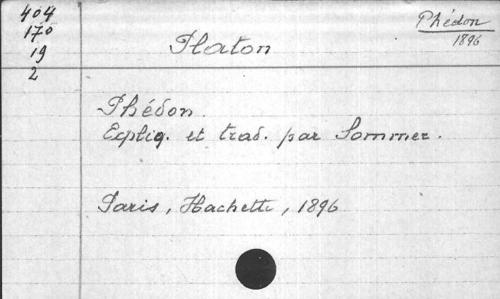 404
170
19
2
Phédon
1896
Platon
Phédon.
Expliq. et trad. par Sommer.
Paris, Hachette, 1896